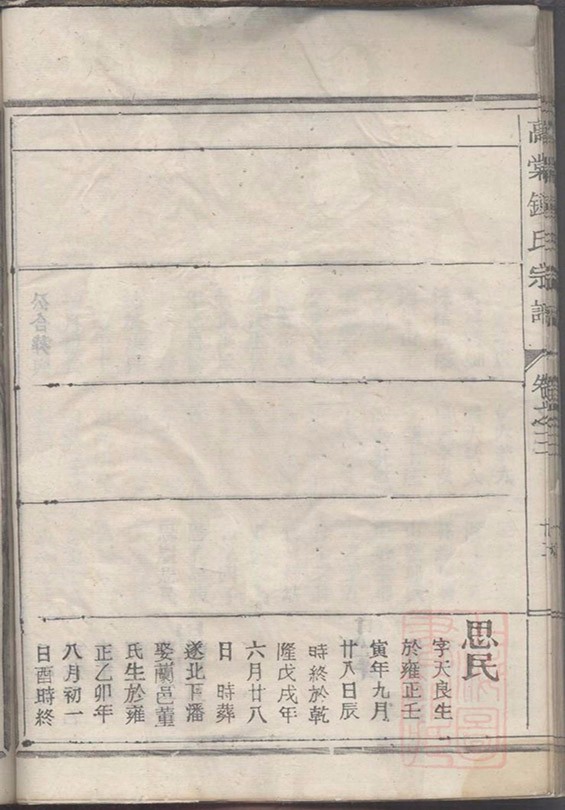 萬棠鍾氏宗譜
卷之三
思民
字天良生
於雍正壬
寅年九月
廿八日辰
時終於乾
隆戊戌年
六月廿八
日 時葬
遂北下潘
娶蘭邑董
氏生於雍
正乙卯年
八月初一
日酉時終